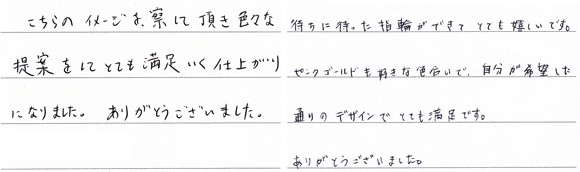 こちらのイメージを察して頂き色々な
提案をしてとても満足いく仕上がり
になりました。 ありがとうございました。
待ちに待った指輪ができてとても嬉しいです。
ピンクゴールドも好きな色合いで、自分が希望した
通りのデザインでとても満足です。
ありがとうございました。